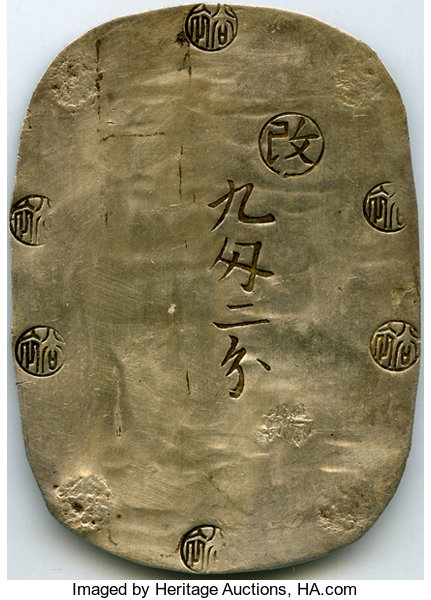 改
九匁二分
Imaged by Heritage Auctions, HA.com